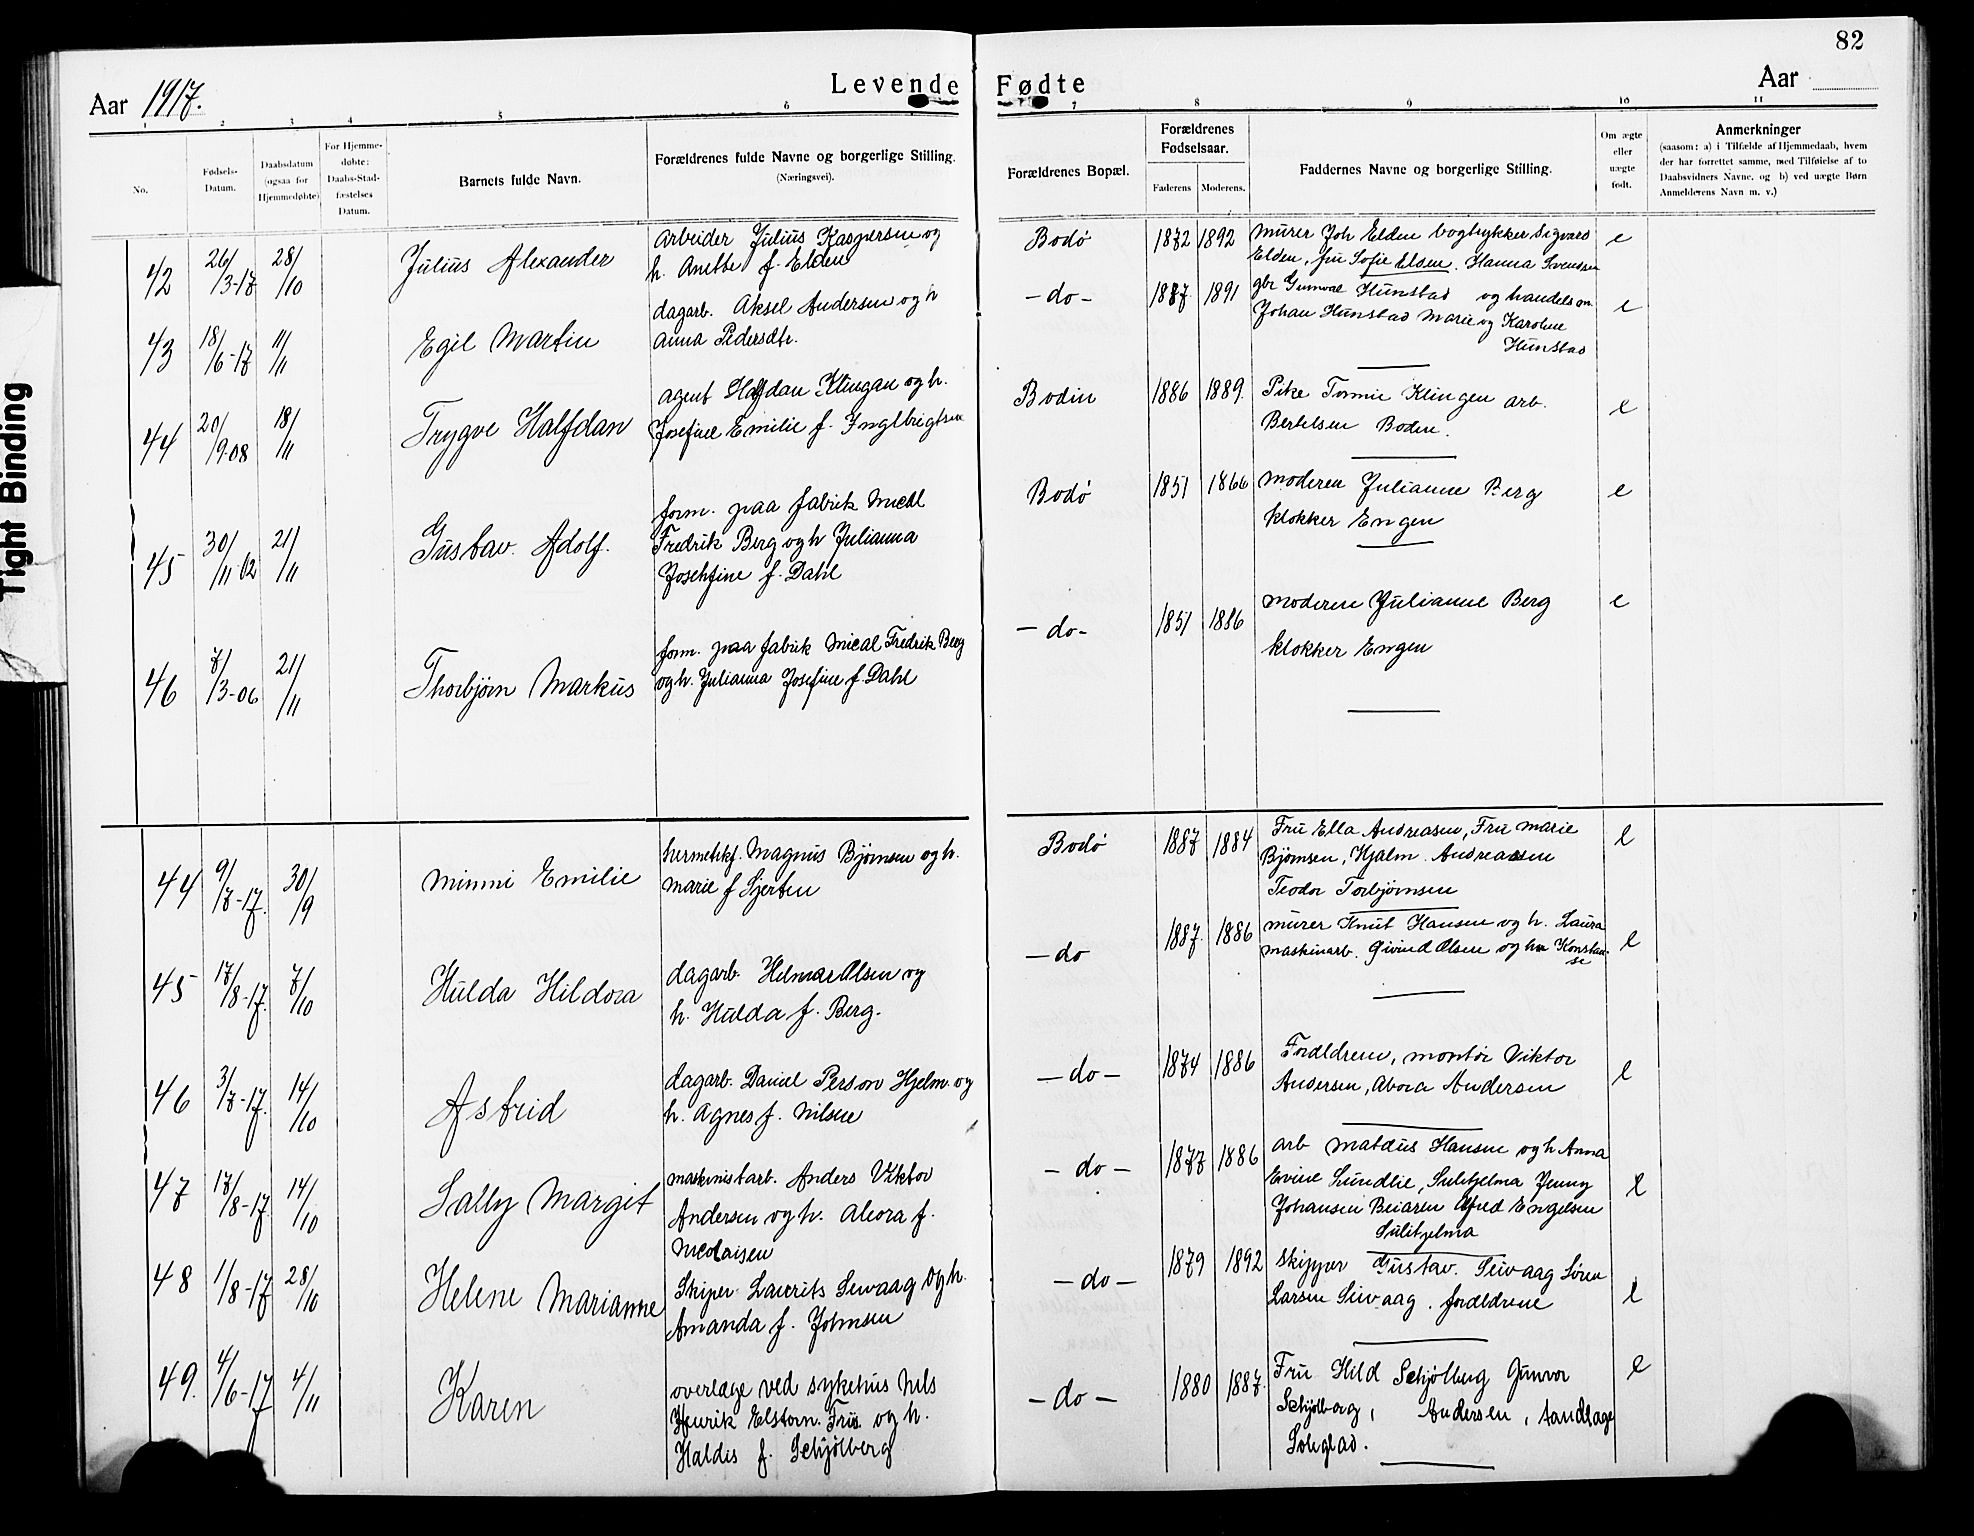 82
Levende Fødte
Aar 1917.
Aar
1 2 3 4 5 6 7 8 9 10 11
No.
Fødsels-
Datum.
Daabsdatum
(ogsaa for
Hjemmedøbte)
For Hjemme-
døbte:
Daabs-Stad-
fæstelses
Datum.
Barnets fulde Navn.
Forældrenes fulde Navne og borgerlige Stilling.
(Næringsvei).
Forældrenes Bopæl.
Forældrenes
Fødselsaar.
Faderens Moderens.
Faddernes Navne og borgerlige Stilling.
Om ægte
eller
uægte
født.
Anmerkninger
(saasom: a) i Tilfælde af Hjemmedaab, hvem
der har forrettet samme, med Tilføielse af to
Daabsvidners Navne, og b) ved uægte Børn
Anmelderens Navn m. v.)
42 26/3-17 28/10 Julius Alexander
Arbeider Julius Kaspersen og
h. Anette f. Elden
Bodø 1872 1892
murer Joh Elden bogtrykker Sigvard
Elden, fru Sofie Elden. Hanna Svendsen
e
43 18/6-17 11/11 Egil Martin
dagarb. Aksel Andersen og h
Anna Pedersdtr.
- do - 1887 1891
gbr Gunval Hunstad og handelsm.
Johan Hunstad Marie og Karoline
Hunstad
e
44 20/9-08 18/11 Trygve Halfdan
agent Halfdan Klingan og h.
Josefine Emilie f. Inglbrigtsen
Bodin 1886 1889.
Pike Tormie Klingen arb.
Bertelsen Bodin.
e
45 30/11-02 21/11 Gustav. Adolf.
form. paa fabrik Micdl
Fredrik Berg og h Julianna
Josehfine f. Dahl
Bodø 1851 1866
Moderen Julianne Berg
klokker Engen
e
46 7/3-06 21/11 Thorbjørn Markus
form. paa fabrik Mical Fredrik Berg
og h. Julianna Josefine f Dahl
- do - 1851 1886
Moderen Julianne Berg
klokker Engen
e
44 9/7-17. 30/9 Minni Emilie
hermetikf. Magnus Bjørnsen og h.
Marie f Sjerten
Bodø 1887 1884
Fru Ella Andreasen, Fru Marie
Bjørnsen, Hjalm. Andreassen
Teodor Torbjørnsen
e
45 17/8-17. 7/10 Hulda Hildora
dagarb. Helmar Olsen og
h. Hulda f. Berg.
- do 1887. 1886
murer Knut Hansen og h. Laura
maskinarb. Eivind Olsen og hu Konstan-
se
e
46 3/7-17. 14/10 Astrid
dagarb. Daniel Person Hjelm. og
h. Agnes f. Nilsen
- do - 1874 1886
Foreldrene, montør Viktor
Andersen, Alvora Andersen
e
47 17/8-17 14/10 Sally Margit
maskinistarb. Anders Viktor
Andersen og h. Aleora f.
Nicolaisen
- do - 1877 1886
Arb Mateus Hansen og h Anna
Evine Lundlie, Sulitjelma Jenny
Johansen Beiaren Alfred Engelsen
Sulitjelma
e
48 1/8-17 28/10 Helene Marianne
Skiper Laurits Seivaag og h.
Amanda f. Johnsen
- do - 1879 1892
Skipper Gustav. Seivaag Søren
Larsen Seivaag. foreldrene
e
49. 4/6-17 4/11 Karen
overlæge ved sykehus Nils
Henrik Elstorn. Friis og h.
Haldis f. Schjølberg
- do - 1880 1887.
Fru Hild Schjølberg Gunvor
Schjølberg, Andersen, tandlæge
Solglad.
e
Tight Binding